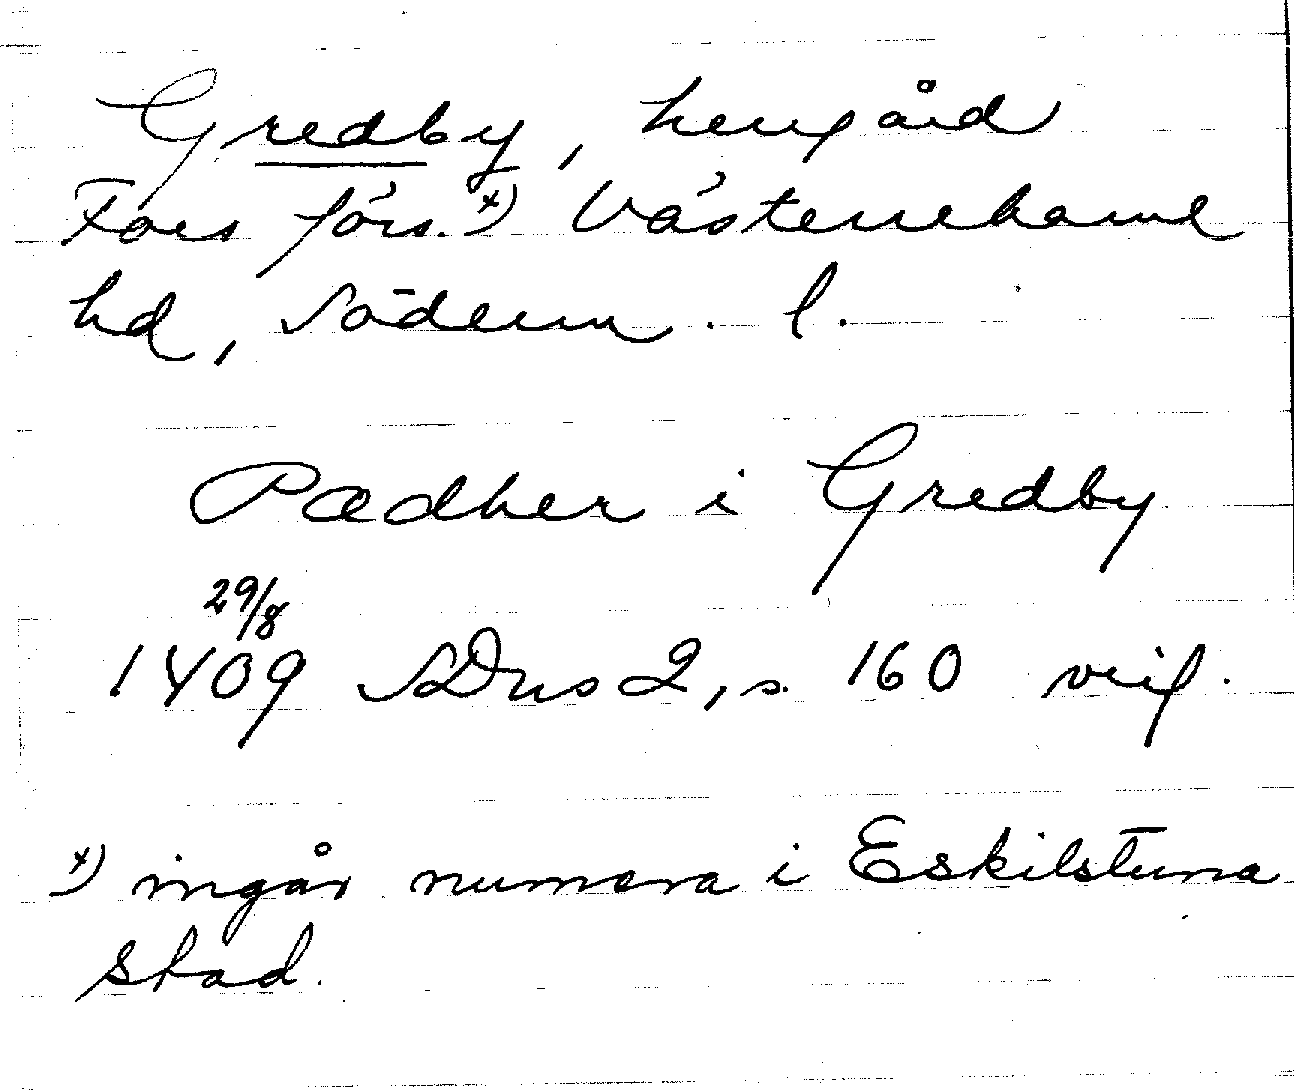 Gredby, herrgård
Fors förs. x) Västerrekarne
hd, Söderm. l.
Pædher i Gredby
29/8
1409 SDns 2, s. 160
x) ingår numera i Eskilstuna
stad.